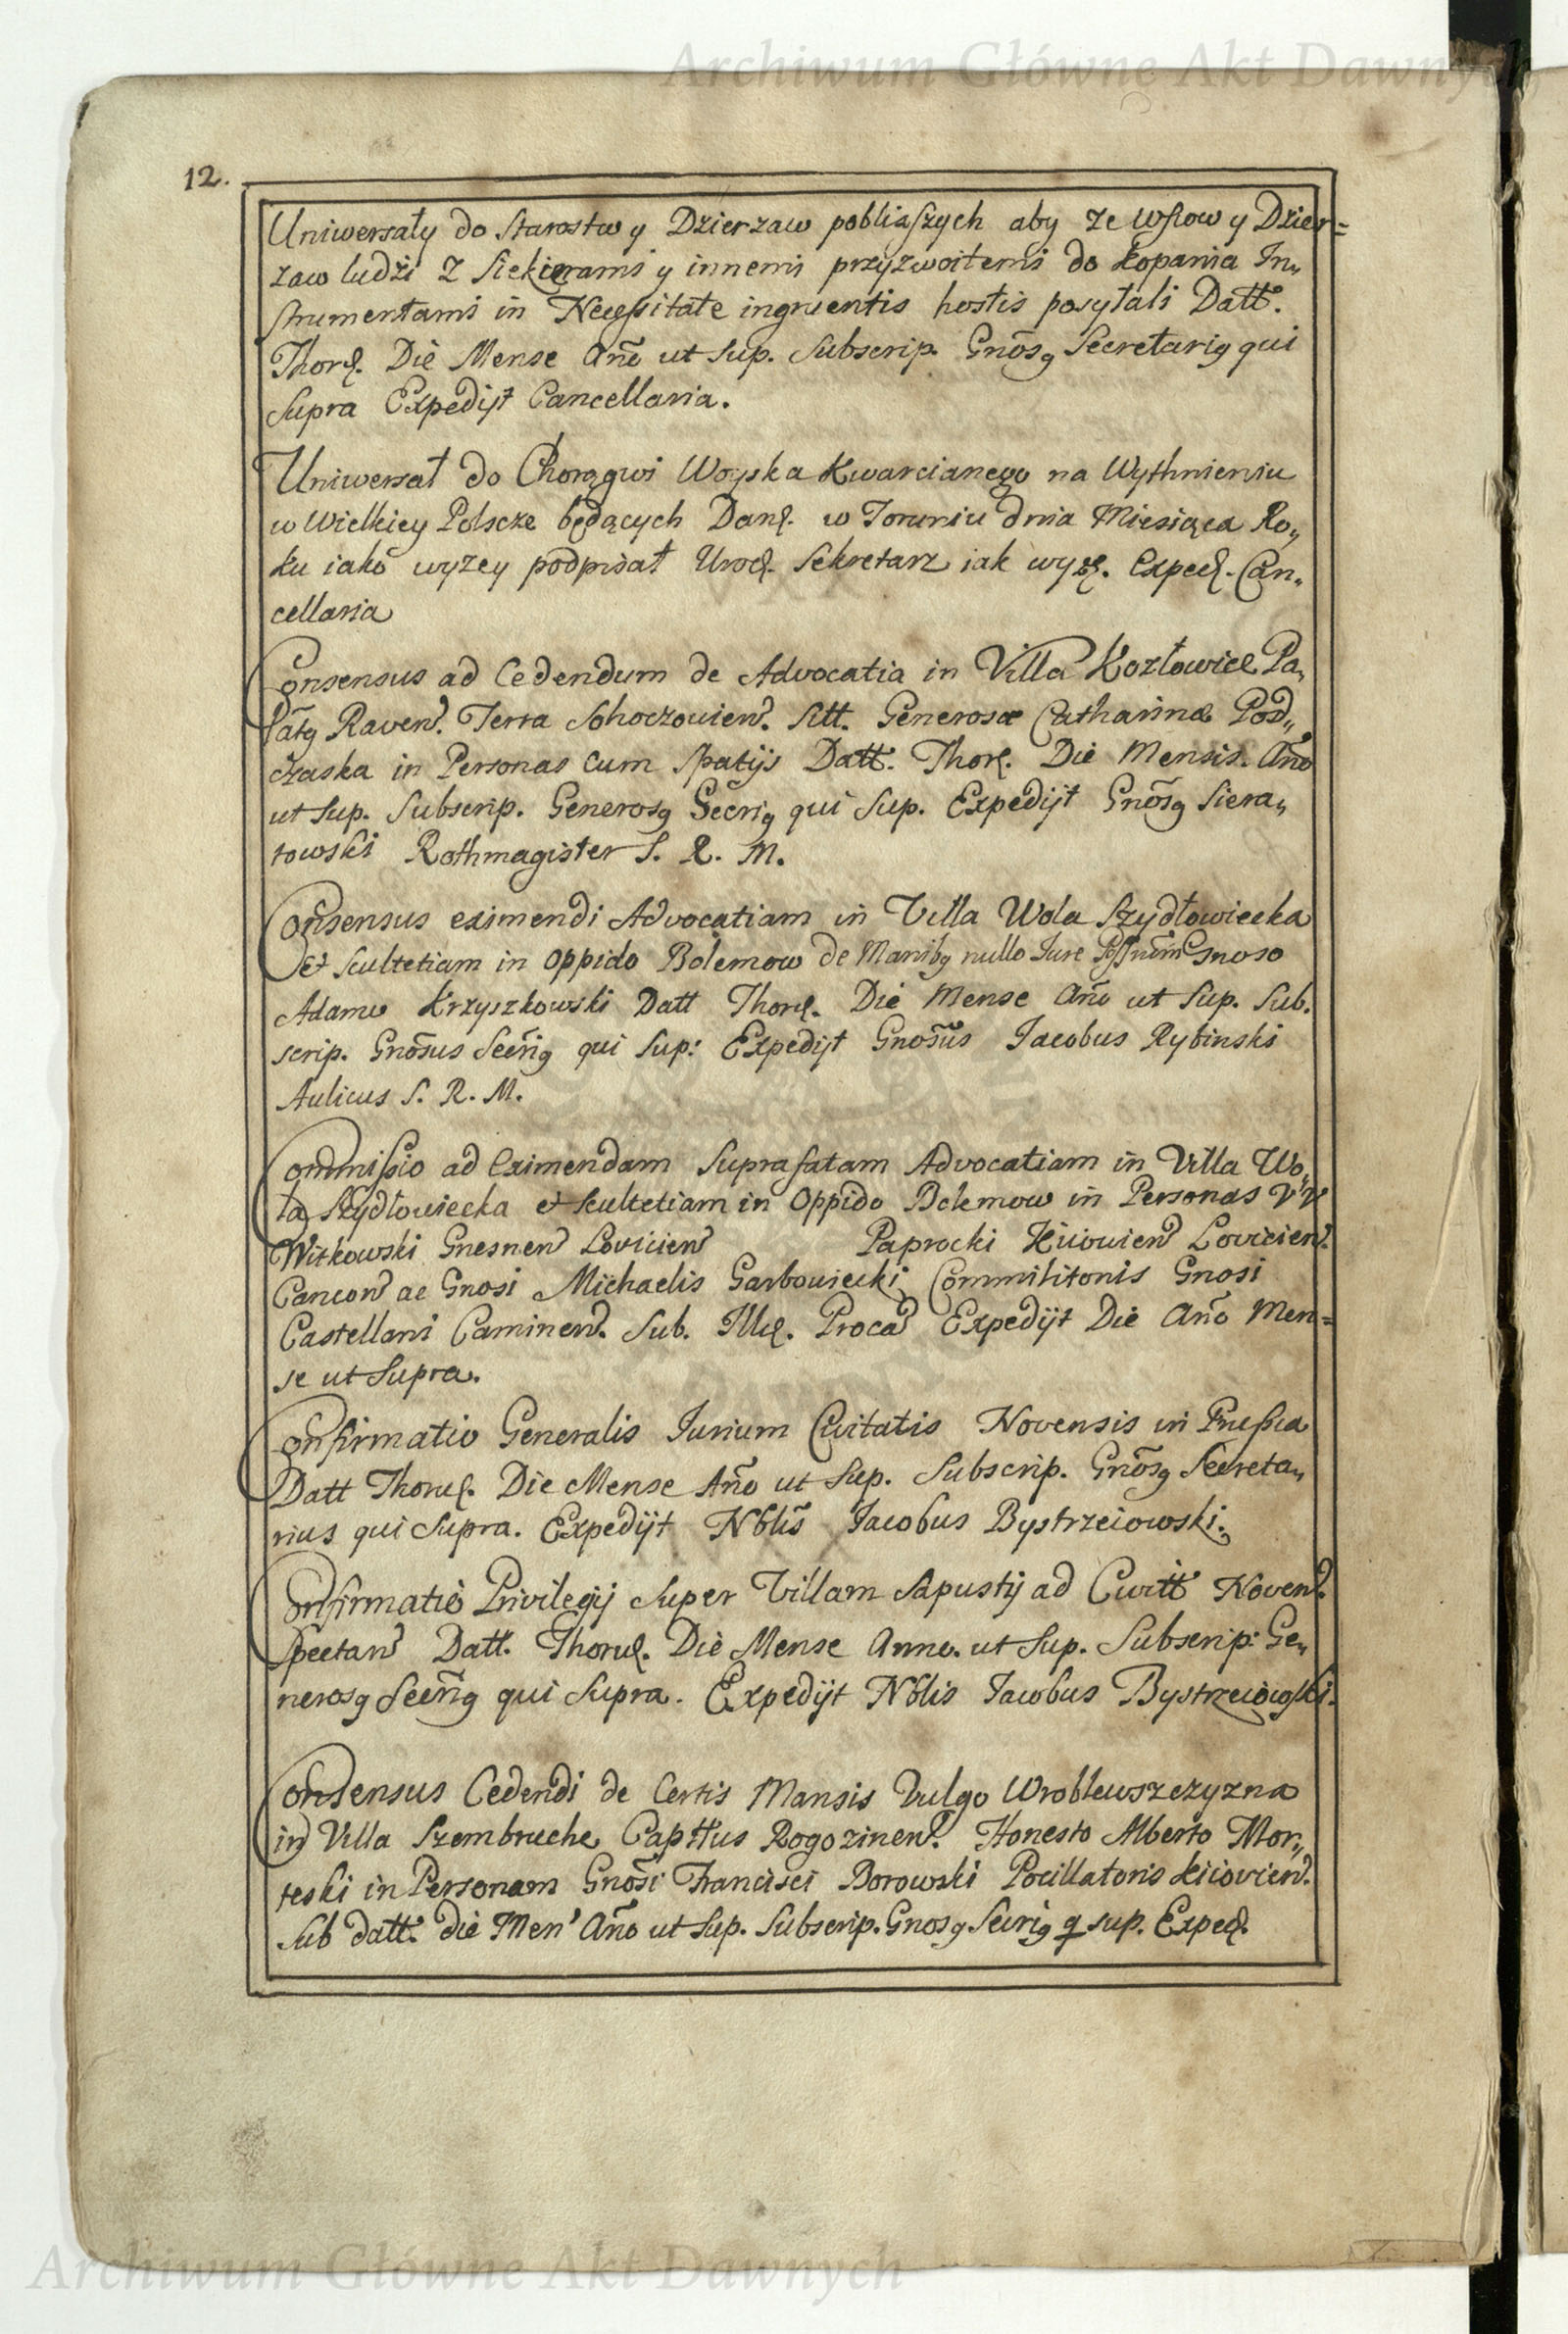 Archiwum Główne Akt Dawnych
12.
Uniwersały do Starostw y Dzierzaw pobliaszych aby ze wsiow y Dzier=
zaw ludzi z Siekierami y innemi przyzwoitemi do kopania In„
strumentami in Necessitate ingruentis hostis posyłali Datt.
Thorꝭ. Die Mense Año ut Sup. Subscrip. Gnõsꝯ Secretariꝯ qui
Supra Expedijt Cancellaria.
Uniwersał do Chorągwi Woyska Kwarcianego na Wythnieniu
w Wielkiey Polscze będących Danꝭ. w Toruniu dnia Miesiąca Ro„
ku iako wyzey podpisał Urodꝭ. Sekretarz iak wyzꝭ. Expedꝭ. Can„
cellaria
Consensus ad Cedendum de Advocatia in Villa Kozłowice Pa„
lãtꝯ Raven. Terra Sohoczovien. Sitt. Generosæ Catharinæ Pod„
czaska in Personas Cum Spatijs Datt. Thorꝭ. Die Mensis. Año
ut Sup. Subscrip. Generosꝯ Sẽcriꝯ qui Sup. Expedijt Gnõsꝯ Siera„
towski Rothmagister S. R. M.
Consensus eximendi Advocatiam in Villa Wola Szydłowiecka
et Scultetiam in Oppido Bolemow de Manibꝯ nullo Iure Gnoso
Adamo Krzyszkowski Datt Thorꝭ. Die Mense Año ut Sup. Sub.
scrip. Gnõsus Secr̃iꝯ qui Sup: Expedijt Gnosũs Jacobus Rybinski
Aulicus S. R. M.
Commissio ad Eximendam Suprafatam Advocatiam in Villa Wo„
la Szydłowiecka et Scultetiam in Oppido Bolemow in Personas VV
Witkowski Gnesnen Lovicien Paprocki Kiiovien Lovicien.
Canon ac Gnosi Michaelis Garbowiecki Commilitonis Gnosi
Castellani Caminen. Sub. Illꝭ. Proca Expedijt Die Año Men=
se ut Supra.
Confirmatio Generalis Iurium Civitatis Novensis in Prussia
Datt Thoruꝭ. Die Mense Año ut Sup. Subscrip. Gnõsꝯ Secreta„
rius qui Supra. Expedijt Nblis̃ Jacobus Bystrzeiowski.
Confirmatio Privilegij Super Villam Sapustij ad Civitt Noven.
Spectan Datt. Thoruꝭ. Die Mense Anno. ut Sup. Subscrip: Ge„
nerosꝯ Secr̃iꝯ qui Supra. Expedijt Nblis Jacobus Bystrzeiowski.
Consensus Cedendi de Certis Mansis Vulgo Wroblewszczyzna
in Villa Szembruche Capttus Rogozinen. Honesto Alberto Mor„
teski in Personam Gnosĩ Francisci Borowski Pocillatoris Kiiovien.
Sub datt. die Men' Año ut Sup. Subscrip. Gnosꝯ Secriꝯ q sup. Expedꝭ.
Archiwum Główne Akt Dawnych